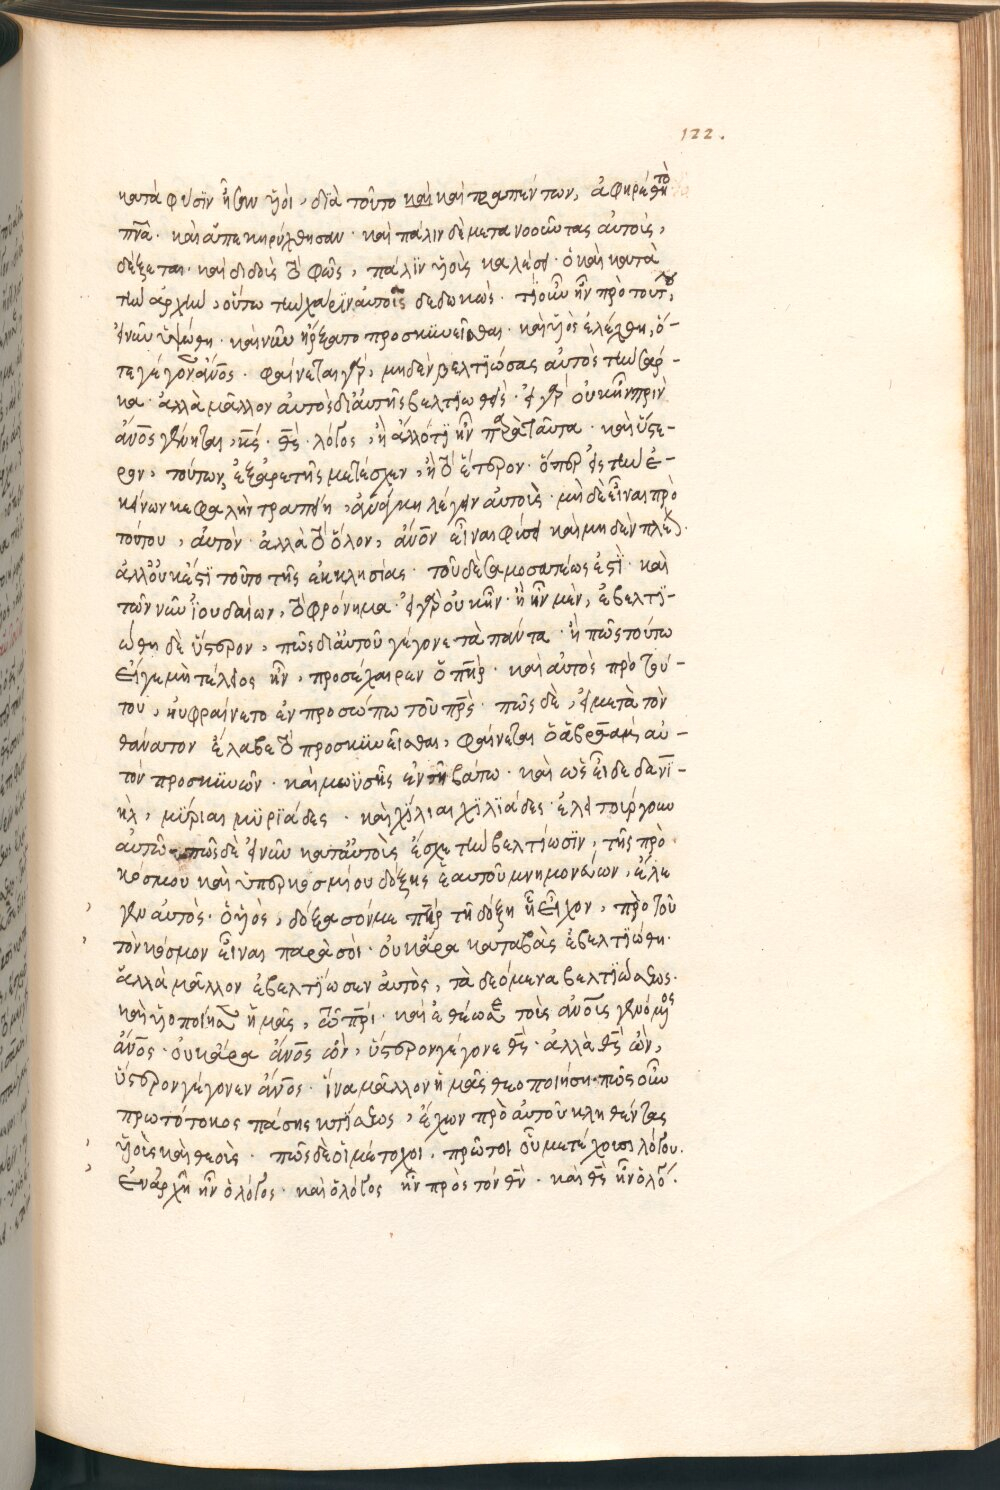 122.
κατὰ φύσϊν ἦσαν ϋἱοὶ, δϊὰ τοῦτο καὶ καὶ τραπέντων, ἀφηρέθη τὸ
πνᾶ· καὶ ἀπεκηρύχθησαν· καὶ πάλιν δὲ μετανοοῦντας αὐτοὺς,
δέξεται· καὶ διδοὺς τὸ φῶς, πάλϊν ϋἱοὺς καλέσει· ὁ καὶ κατὰ
τὴν ἀρχὴν, οὕτω τὴν χάρϊν αὐτοῖς δεδωκώς· τί οὖν ἦν πρὸ τούτου,
εἰ νῦν ὑψώθη· καὶ νῦν ἤρξατο προσκυνεῖσθαι· καὶ ϋἱὸς ἐλέχθη, ὅ-
τε γέγονεν ἄνος· φαίνεται γὰρ, μηδὲν βελτϊώσας αὐτὸς τὴν σάρ-
κα· ἀλλὰ μᾶλλον αὐτὸς δι' αὐτῆς βελτϊωθεὶς· εἰ γὰρ οὐκ ἦν πρὶν
ἄνος γένηται, κς· θς· λόγος, ἢ ἄλλό τϊ ἦν πρὸ ταῦτα· καὶ ὕστε-
ρον, τούτων ἐξ ἀρετῆς μετέσχεν, ἢ τὸ ἕτερον· ὅπερ εἰς τὴν ἐ-
κείνων κεφαλὴν τραπείη, ἀνάγκη λέγειν αὐτοὺς· μὴ δὲ εἶναι πρὸ
τούτου, αὐτὸν· ἀλλὰ τὸ ὅλον, ἄνον εἶναι φύσει καὶ μηδὲν πλέον·
ἀλλ' οὐκ ἔστϊ τοῦτο τῆς ἐκκλησίας· τοῦ δὲ σαμοσατέως ἐστὶ· καὶ
τῶν νῦν ἰουδαίων, τὸ φρόνημα· εἰ γὰρ οὐκ ἦν· ἢ ἦν μὲν, ἐβελτϊ-
ώθη δὲ ὕστερον, πῶς δι' αὐτοῦ γέγονε τὰ πάντα· ἢ πῶς τούτω
εἴγε μὴ τέλειος ἦν, προσέχαιρεν ὁ πηρ· καὶ αὐτὸς πρὸ τού-
του, ηὐφραίνετο ἐν προσώπω τοῦ πρς· πῶς δὲ, εἰ μετὰ τὸν
θάνατον ἔλαβε τὸ προσκυνεῖσθαι, φαίνεται ὁ ἀβραὰμ αὐ-
τὸν προσκυνῶν· καὶ μωϋσῆς ἐν τῆ βάτω· καὶ ὡς εἶδε δανϊ-
ὴλ, μϋρίαι μϋρϊάδες· καὶ χίλιαι χϊλϊάδες ἐλειτούργουν
αὐτῶ πῶς δὲ εἰ νῦν κατ' αὐτοὺς ἔσχε τὴν βελτίωσϊν, τῆς πρὸ
κόσμου καὶ ὑπερκοσμίου δόξης ἑαυτοῦ μνημονεύων, ἔλε
γεν αὐτὸς· ὁ ϋἱὸς, δόξασόν με πηρ τῆ δόξη ἧ εἶχον, πρὸ τοῦ
τὸν κόσμον εἶναι παρὰ σοὶ· οὐκ ἄρα καταβὰς ἐβελτϊώθη·
ἀλλὰ μᾶλλον ἐβελτϊωσεν αὐτὸς, τὰ δεόμενα βελτϊώσεως·
καὶ ϋἱοποίησεν ἡμᾶς, τῶ πρι· καὶ ἐθέωσε τοὺς ἀνους γενόμενος
ἄνος· οὐκ ἄρα ἄνος ὢν, ὕστερον γέγονε θς· ἀλλὰ θς ὢν,
ὕστερον γέγονεν ἄνος· ἵνα μᾶλλον ἡμᾶς θεοποιήση· πῶς οὖν
πρωτότοκος πάσης κτίσεως, ἔχων πρὸ αὐτοῦ κληθέντας
ϋἱοὺς καὶ θεοὺς· πῶς δὲ οἱ μέτοχοι, πρῶτοι οὐ μετέχουσι λόγου·
ἐν ἀρχῆ ἦν ὁ λόγος· καὶ ὁ λόγος ἦν πρὸς τὸν θν· καὶ θς ἦν ὁ λόγος·